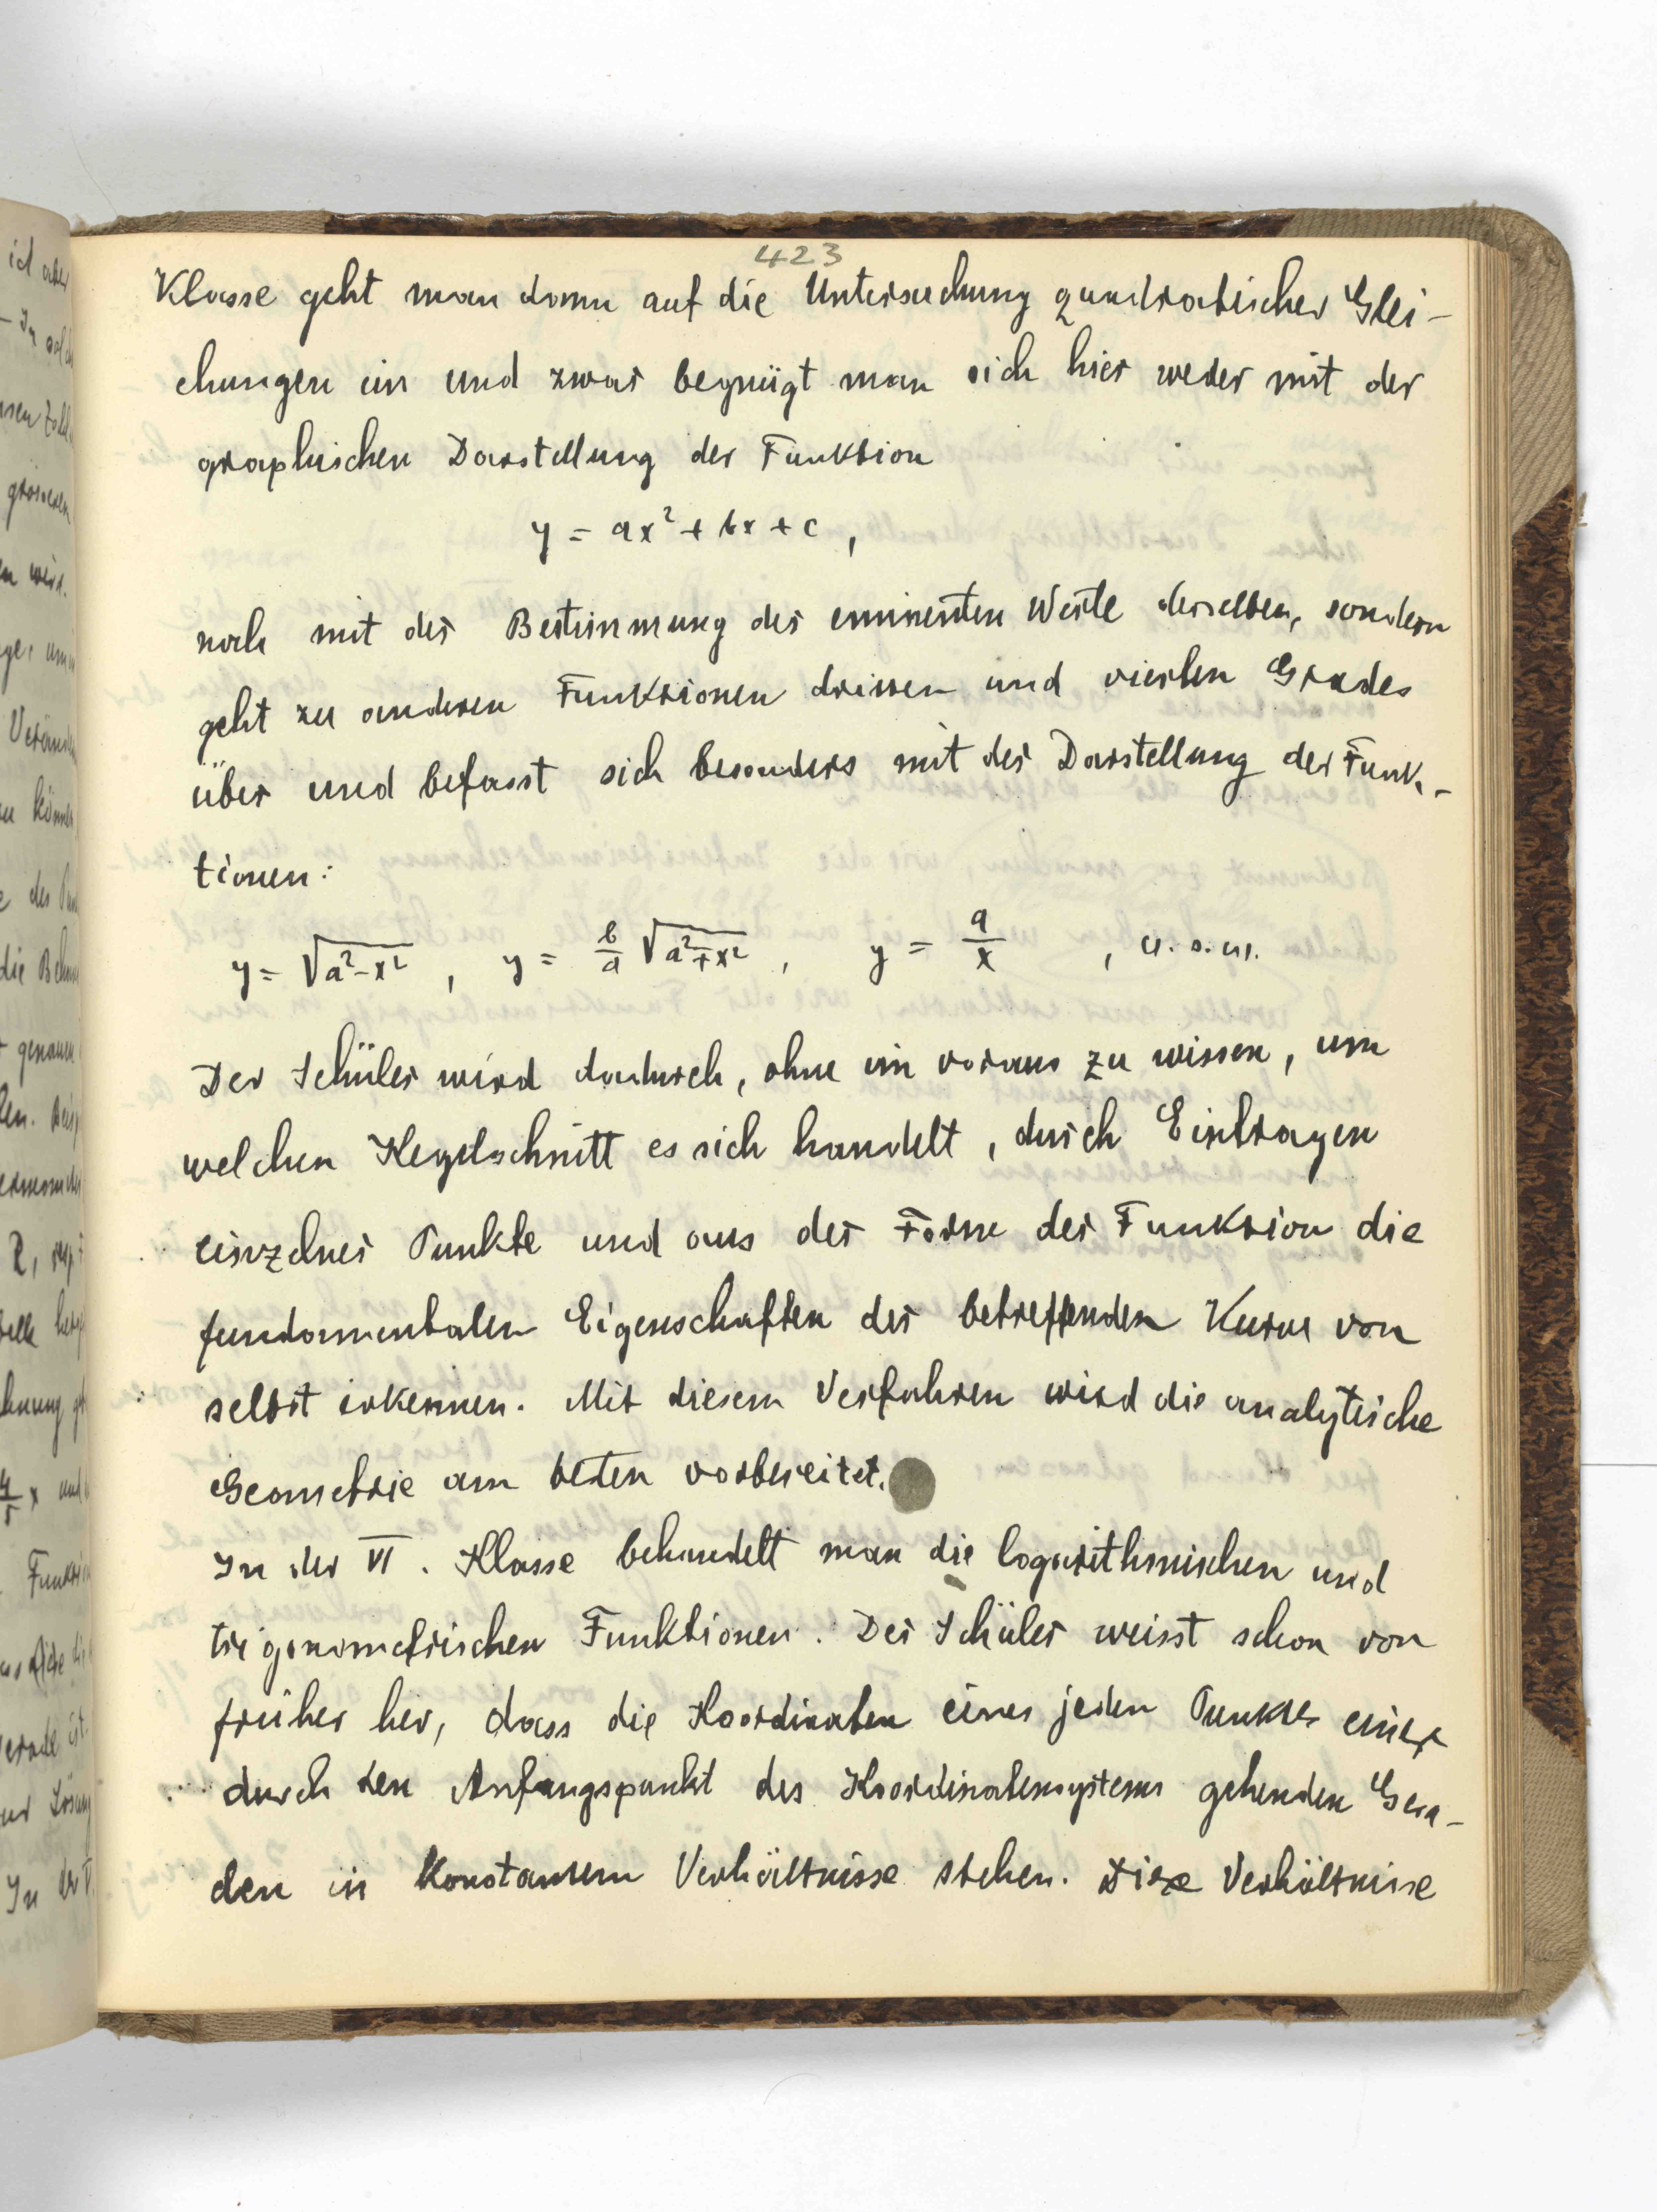 423
Klasse geht man dann auf die Untersuchung quadratischer Glei-
chungen ein und zwar begnügt man sich hier weder mit der
graphischen Darstellung der Funktion
y = ax² + bx + c ,
noch mit der Bestimmung der eminenten Werte derselben, sondern
geht zu anderen Funktionen dritten und vierten Grades
über und befasst sich besonders mit der Darstellung der Funk-
tionen:
y = √(a²-x²) , y = b/a √(a²∓x²) , y = a/x , u. s. w.
Der Schüler wird dadurch, ohne im voraus zu wissen, um
welchen Kegelschnitt es sich handelt, durch Eintragen
einzelner Punkte und aus der Form der Funktion die
fundamentalen Eigenschaften der betreffenden Kurve von
selbst erkennen. Mit diesem Verfahren wird die analytische
Geometrie am besten vorbereitet.
In der VI. Klasse behandelt man die logarithmischen und
trigonometrischen Funktionen. Der Schüler weisst schon von
früher her, dass die Koordinaten eines jeden Punktes einer
durch den Anfangspunkt des Koordinatensystems gehenden Gera-
den in konstantem Verhältnisse stehen. Diese Verhältnisse